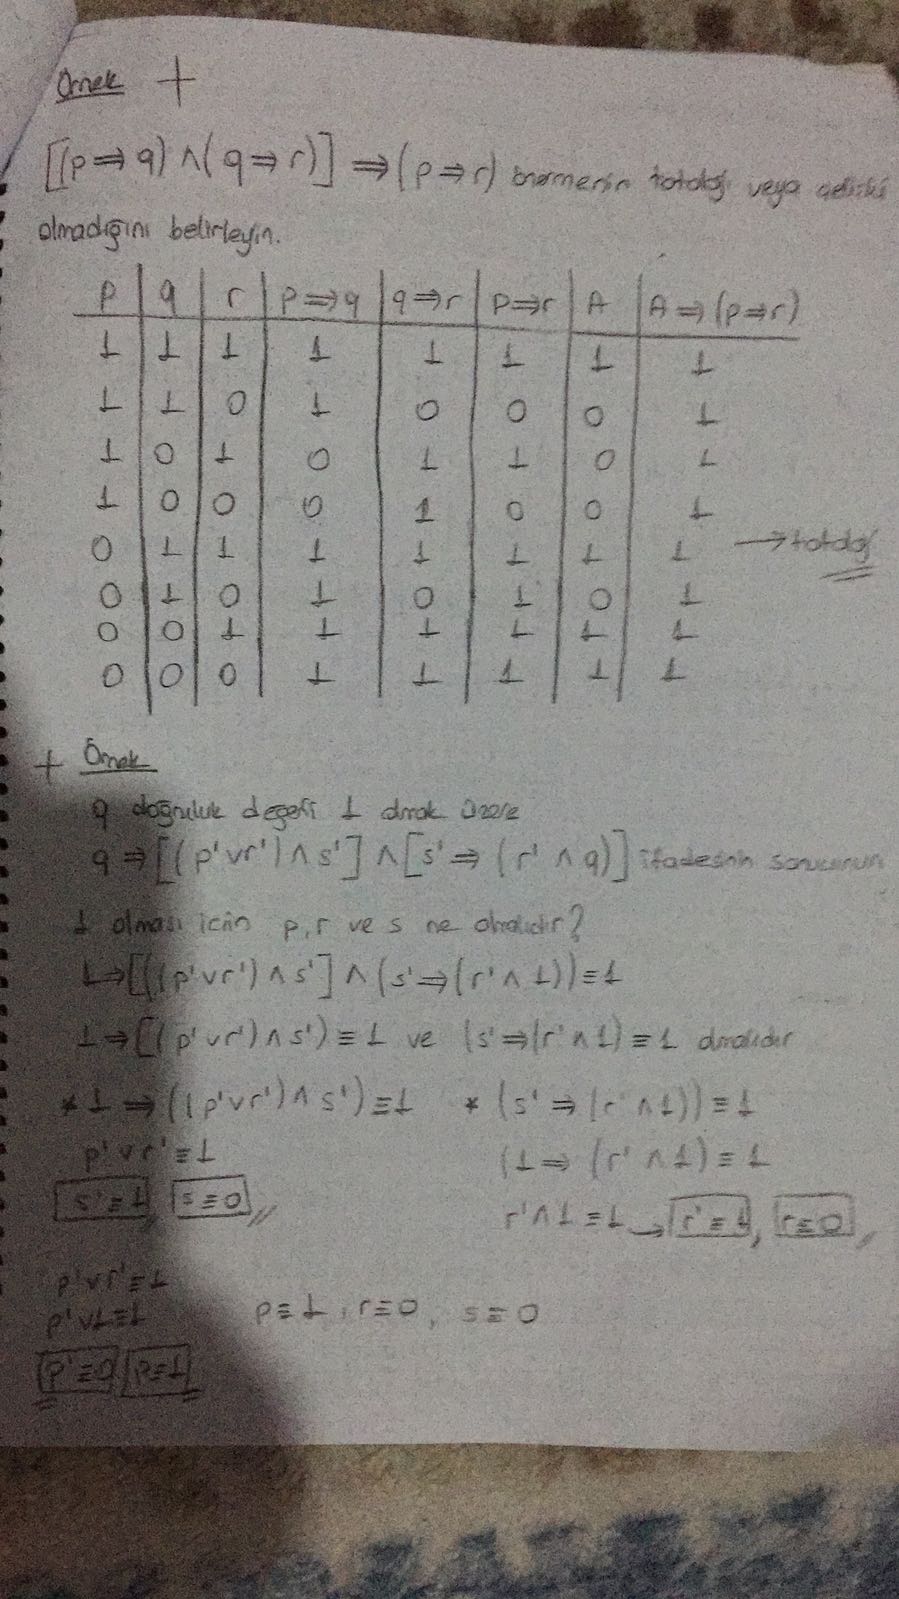 Örnek +
[(p⇒q) ∧ (q⇒r)] ⇒ (p⇒r) önermenin totoloji veya çelişki
olmadığını belirleyin.
p q r p⇒q q⇒r p⇒r A A⇒(p⇒r)
1 1 1 1 1 1 1 1
1 1 0 1 0 0 0 1
1 0 1 0 1 1 0 1
1 0 0 0 1 0 0 1
0 1 1 1 1 1 1 1 → totoloji
0 1 0 1 0 1 0 1
0 0 1 1 1 1 1 1
0 0 0 1 1 1 1 1
+ Örnek
q doğruluk değeri 1 olmak üzere
q ⇒ [(p'∨r') ∧ s'] ∧ [s' ⇒ (r' ∧ q)] ifadesinin sonucunun
1 olması için p, r ve s ne olmalıdır?
1 ⇒ [((p'∨r') ∧ s'] ∧ (s' ⇒ (r' ∧ 1)) ≡ 1
1 ⇒ [(p'∨r') ∧ s') ≡ 1 ve (s' ⇒ (r' ∧ 1) ≡ 1 olmalıdır
* 1 ⇒ ((p'∨r') ∧ s') ≡ 1 * (s' ⇒ (r' ∧ 1)) ≡ 1
p'∨r' ≡ 1 (1 ⇒ (r' ∧ 1) ≡ 1
s' ≡ 1, s ≡ 0 r' ∧ 1 ≡ 1 → r' ≡ 1, r ≡ 0
p'∨r' ≡ 1
p'∨1 ≡ 1 p ≡ 1, r ≡ 0, s ≡ 0
p' ≡ 0 p ≡ 1